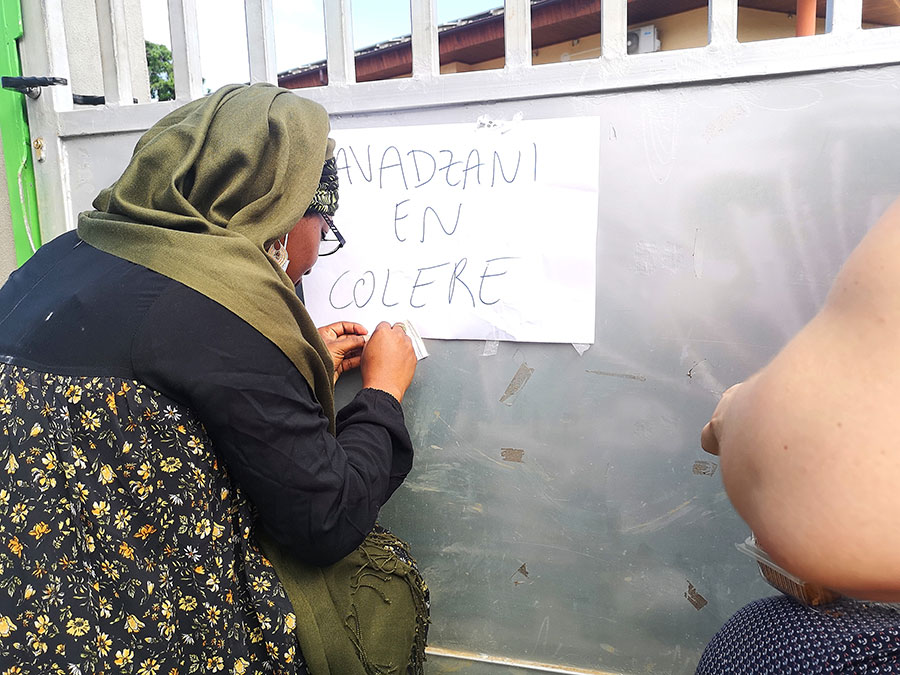 AVADZANI
EN
COLERE